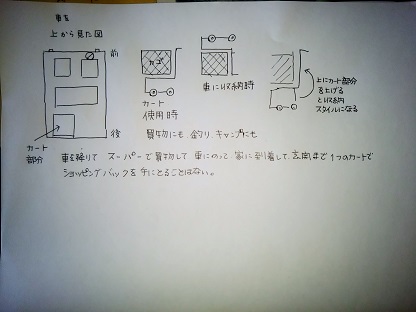 車を
上から見た図
前
後
カート
部分
カゴ
カート
使用時
車に収納時
上にカート部分
を上げる
と収納
スタイルになる
買物にも 釣り、キャンプにも
車を降りて スーパーで買物して 車にのって 家に到着して、玄関まで1つのカートで
ショッピングバックを手にとることはない。